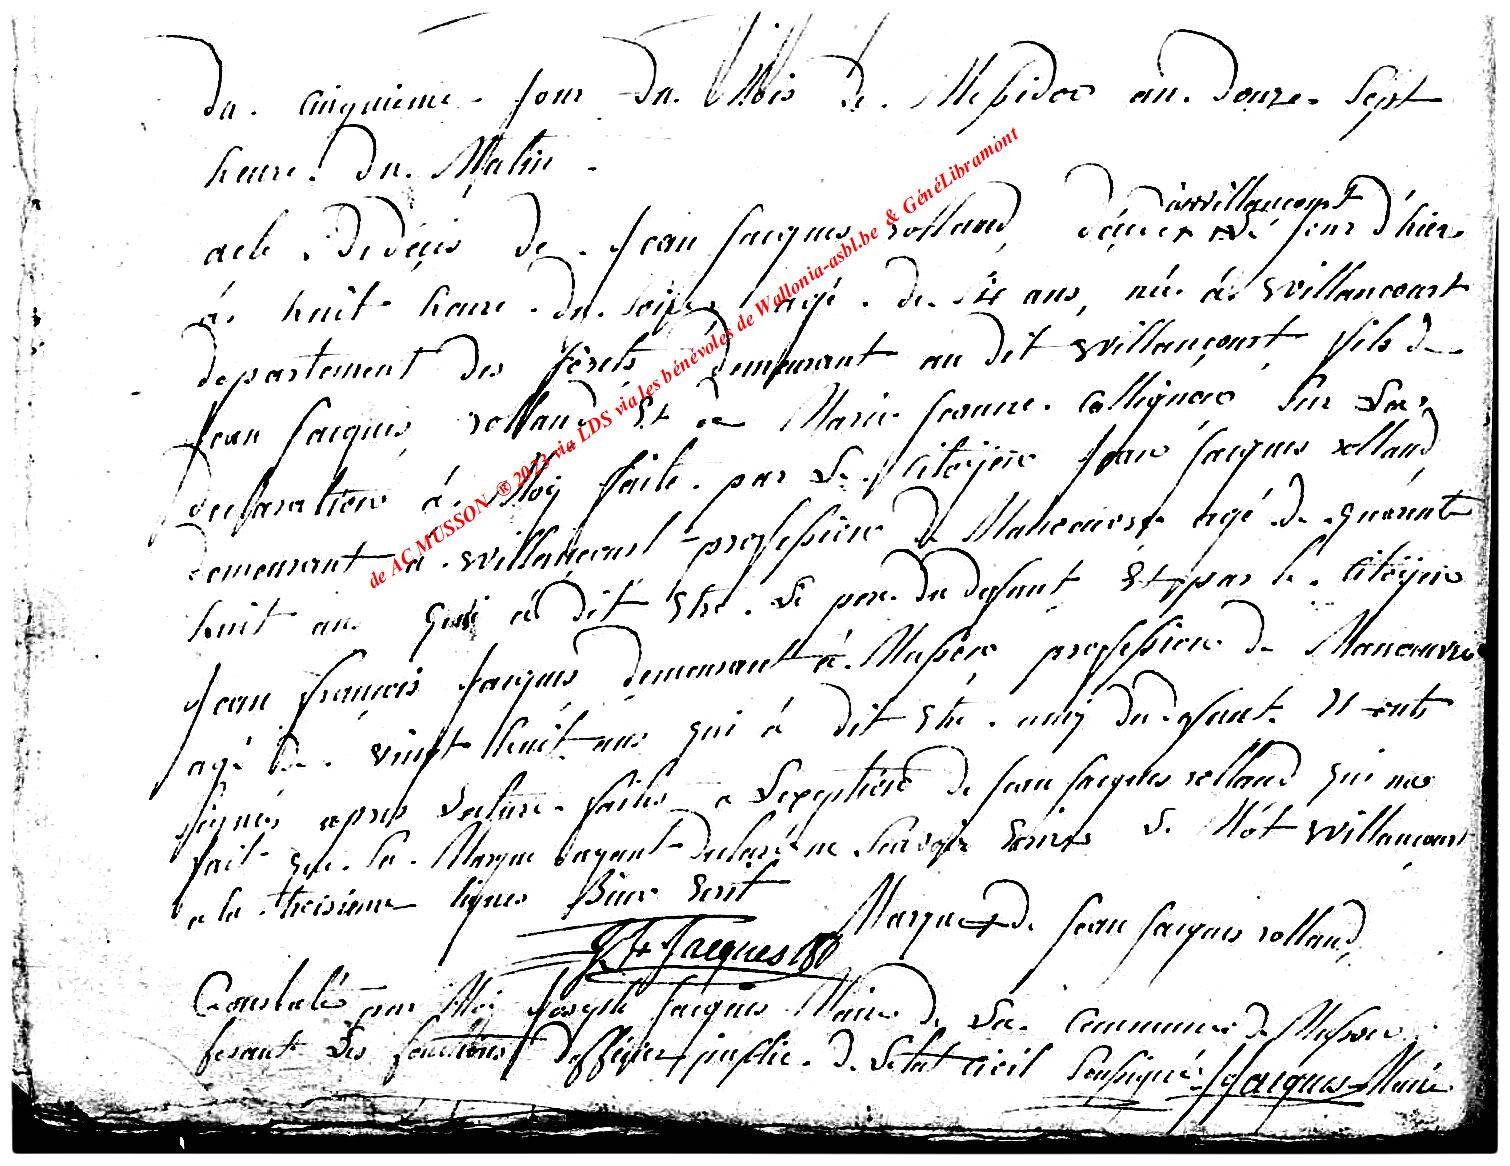 du cinquieme jour du Mois de Messidor an douze Sept
heure du Matin
acte de décès de Jean jacques rolland décédé à willancourt le jour d'hier
à huit heure du soire agé de 14 ans, née à Willancourt
departement des forêts demeurant au dit willancourt fils de
Jean jacques rolland Et de Marie jeanne Collignon Sur La
declaration à Moy faite par Le Citoÿen Jean jacques rolland
demeurant à willancourt profession de Maneuvre agé de quarente
huit ans qui a dit Etre Le pere du defunt Et par le Citoÿen
Jean françois jacques demeurant à Musson profession de Manouvre
agé de vingt huit ans qui à dit Etre amy du defunt Et ont
signés apres Lecture faite a Lexeption de Jean jacques rolland qui na
fait que Sa Marque ayant declaré ne Scavoir Ecrire Le Mot Willancourt
a la troisieme lignes Bien Ecrit
Marque de Jean jacques rolland
J f Jacques
Constaté par Moy Joseph Jacques Maire de La Commune de Musson
fesante Les fonctions d'officier public de L'etat Civil Soussigné J Jacques Maire
de AC MUSSON ® 2023 via LDS via les bénévoles de Wallonia-asbl.be & GénéLibramont